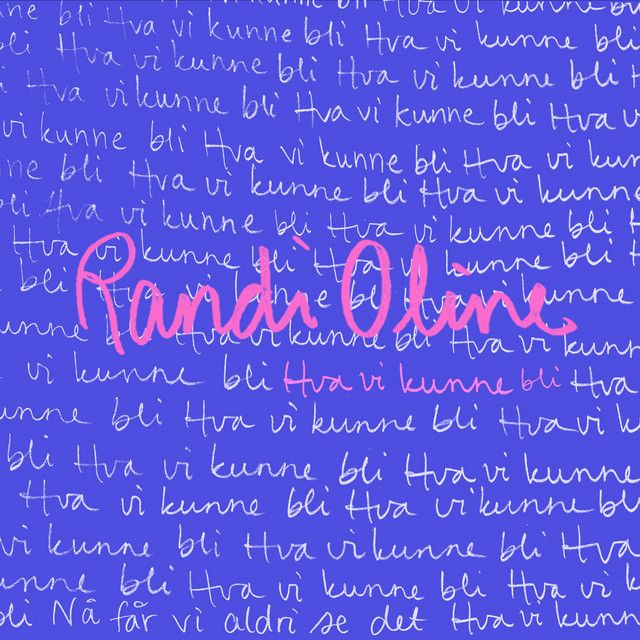 kunne bli Hva vi kunne bli
Hva vi kunne bli Hva vi kunne bli
bli Hva vi kunne bli Hva vi kunne bli H
Hva vi kunne bli Hva vi kunne bli Hva v
vi kunne bli Hva vi kunne bli Hva vi kun
ne bli Hva vi kunne bli Hva vi kunne
bli Hva vi kunne bli Hva vi kunne bli H
Hva vi kunne bli Hva vi kunne bli H
Randi Oline
bli Hva vi kunne bli Hva vi kunne
unne bli Hva vi kunne bli Hva vi kunn
vi kunne bli Hva vi kunne bli Hva
unne bli Hva vi kunne bli Hva vi k
bli Hva vi kunne bli Hva vi kunne
Hva vi kunne bli Hva vi kunne bli
vi kunne bli Hva vi kunne bli Hva
unne bli Hva vi kunne bli Hva vi k
bli Nå får vi aldri se det Hva vi kunn